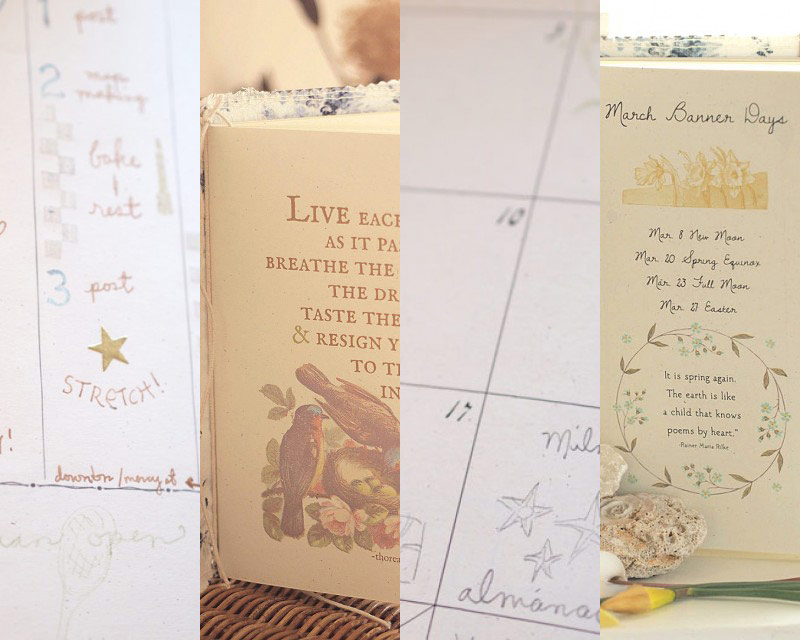 1 post
2 map
making
bake
+
rest
3 post
STRETCH!
open
LIVE EACH
AS IT PA
BREATHE THE
THE DR
TASTE THE
& RESIGN Y
TO T
IN
-thore
9
10
17
Miln
almana
March Banner Days
Mar. 8 New Moon
Mar. 20 Spring Equinox
Mar. 23 Full Moon
Mar. 27 Easter
"It is spring again.
The earth is like
a child that knows
poems by heart."
-Rainer Maria Rilke